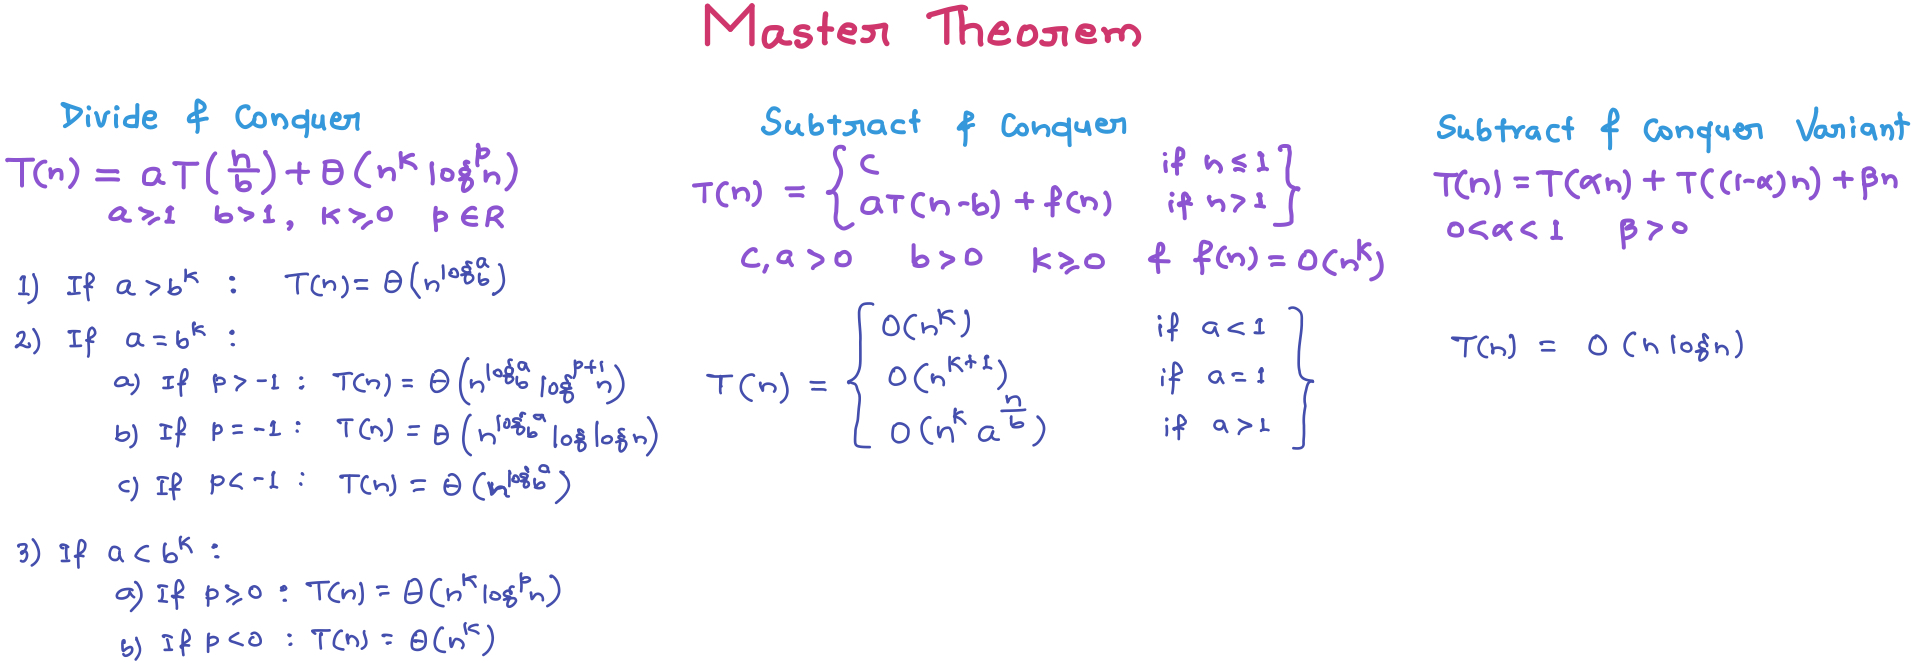 Master Theorem
Divide & Conquer
T(n) = a T(n/b) + θ(n^k log^p n)
a ≥ 1 b > 1, k ≥ 0 p ∈ R
1) If a > b^k : T(n) = θ(n^log_b^a)
2) If a = b^k :
a) If p > -1 : T(n) = θ(n^log_b^a log^p+1 n)
b) If p = -1 : T(n) = θ(n^log_b^a log log n)
c) If p < -1 : T(n) = θ(n^log_b^a)
3) If a < b^k :
a) If p ≥ 0 : T(n) = θ(n^k log^p n)
b) If p < 0 : T(n) = θ(n^k)
Subtract & Conquer
T(n) = { c if n ≤ 1 }
{ aT(n-b) + f(n) if n > 1 }
c, a > 0 b > 0 k ≥ 0 & f(n) = O(n^k)
T(n) = { O(n^k) if a < 1 }
{ O(n^k+1) if a = 1 }
{ O(n^k a^n/b) if a > 1 }
Subtract & Conquer Variant
T(n) = T(αn) + T((1-α)n) + βn
0 < α < 1 β > 0
T(n) = O(n log n)